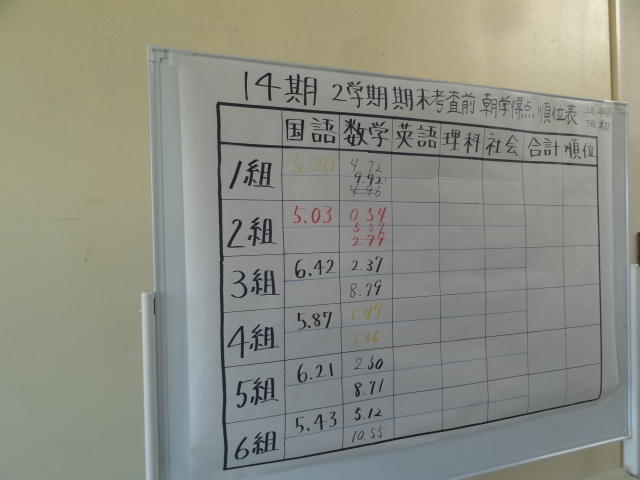 14期 2学期 期末考査前 朝学得点 順位表
国語 数学 英語 理科 社会 合計 順位
1組 5.20 4.72
9.92
4.46
2組 5.03 0.54
5.57
2.79
3組 6.42 2.37
8.79
4組 5.87 1.49
7.36
5組 6.21 2.50
8.71
6組 5.43 5.12
10.55